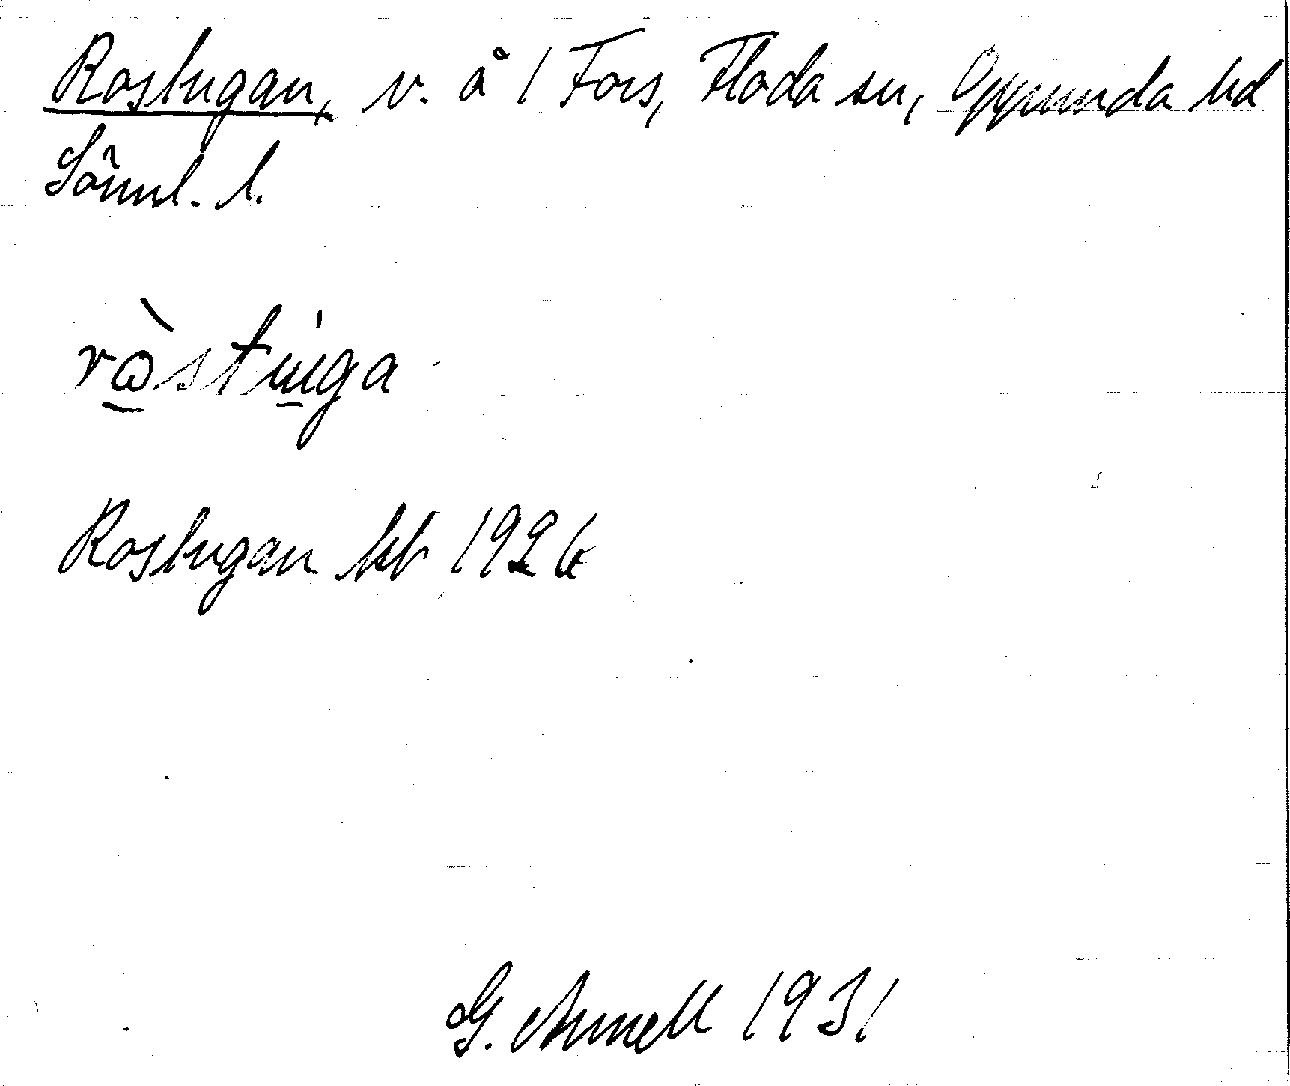 Rosstugan, v. å 1 Fors, Floda sn, Oppunda hd
Söml. l.
ròstuga
Rosstugan kb 1926
G. Annell 1931